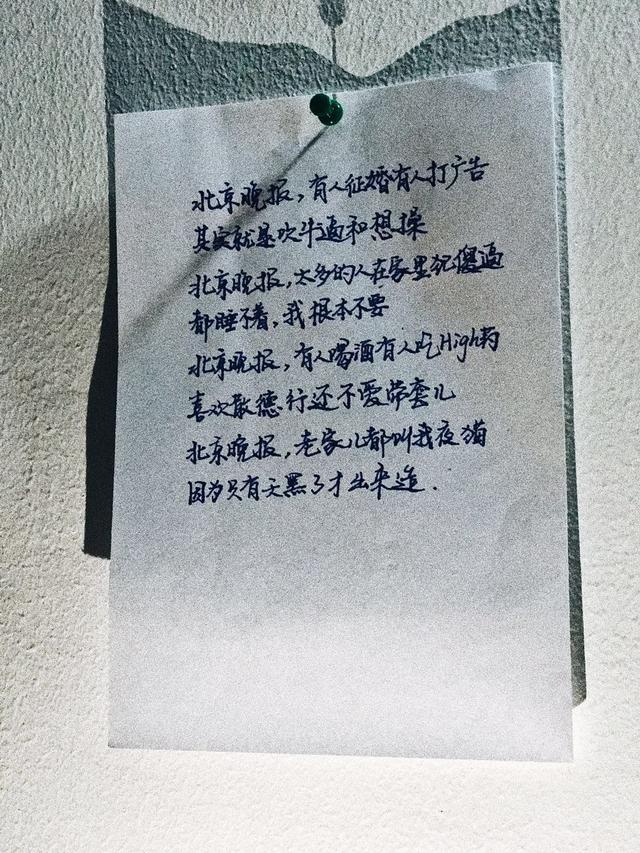 北京晚报，有人征婚有人打广告
其实就是吹牛逼和想操
北京晚报，太多的人在家里犯傻逼
都睡不着，我根本不要
北京晚报，有人喝酒有人吃High药
喜欢散德行还不爱带套儿
北京晚报，老家儿都叫我夜猫
因为只有天黑了才出来造.